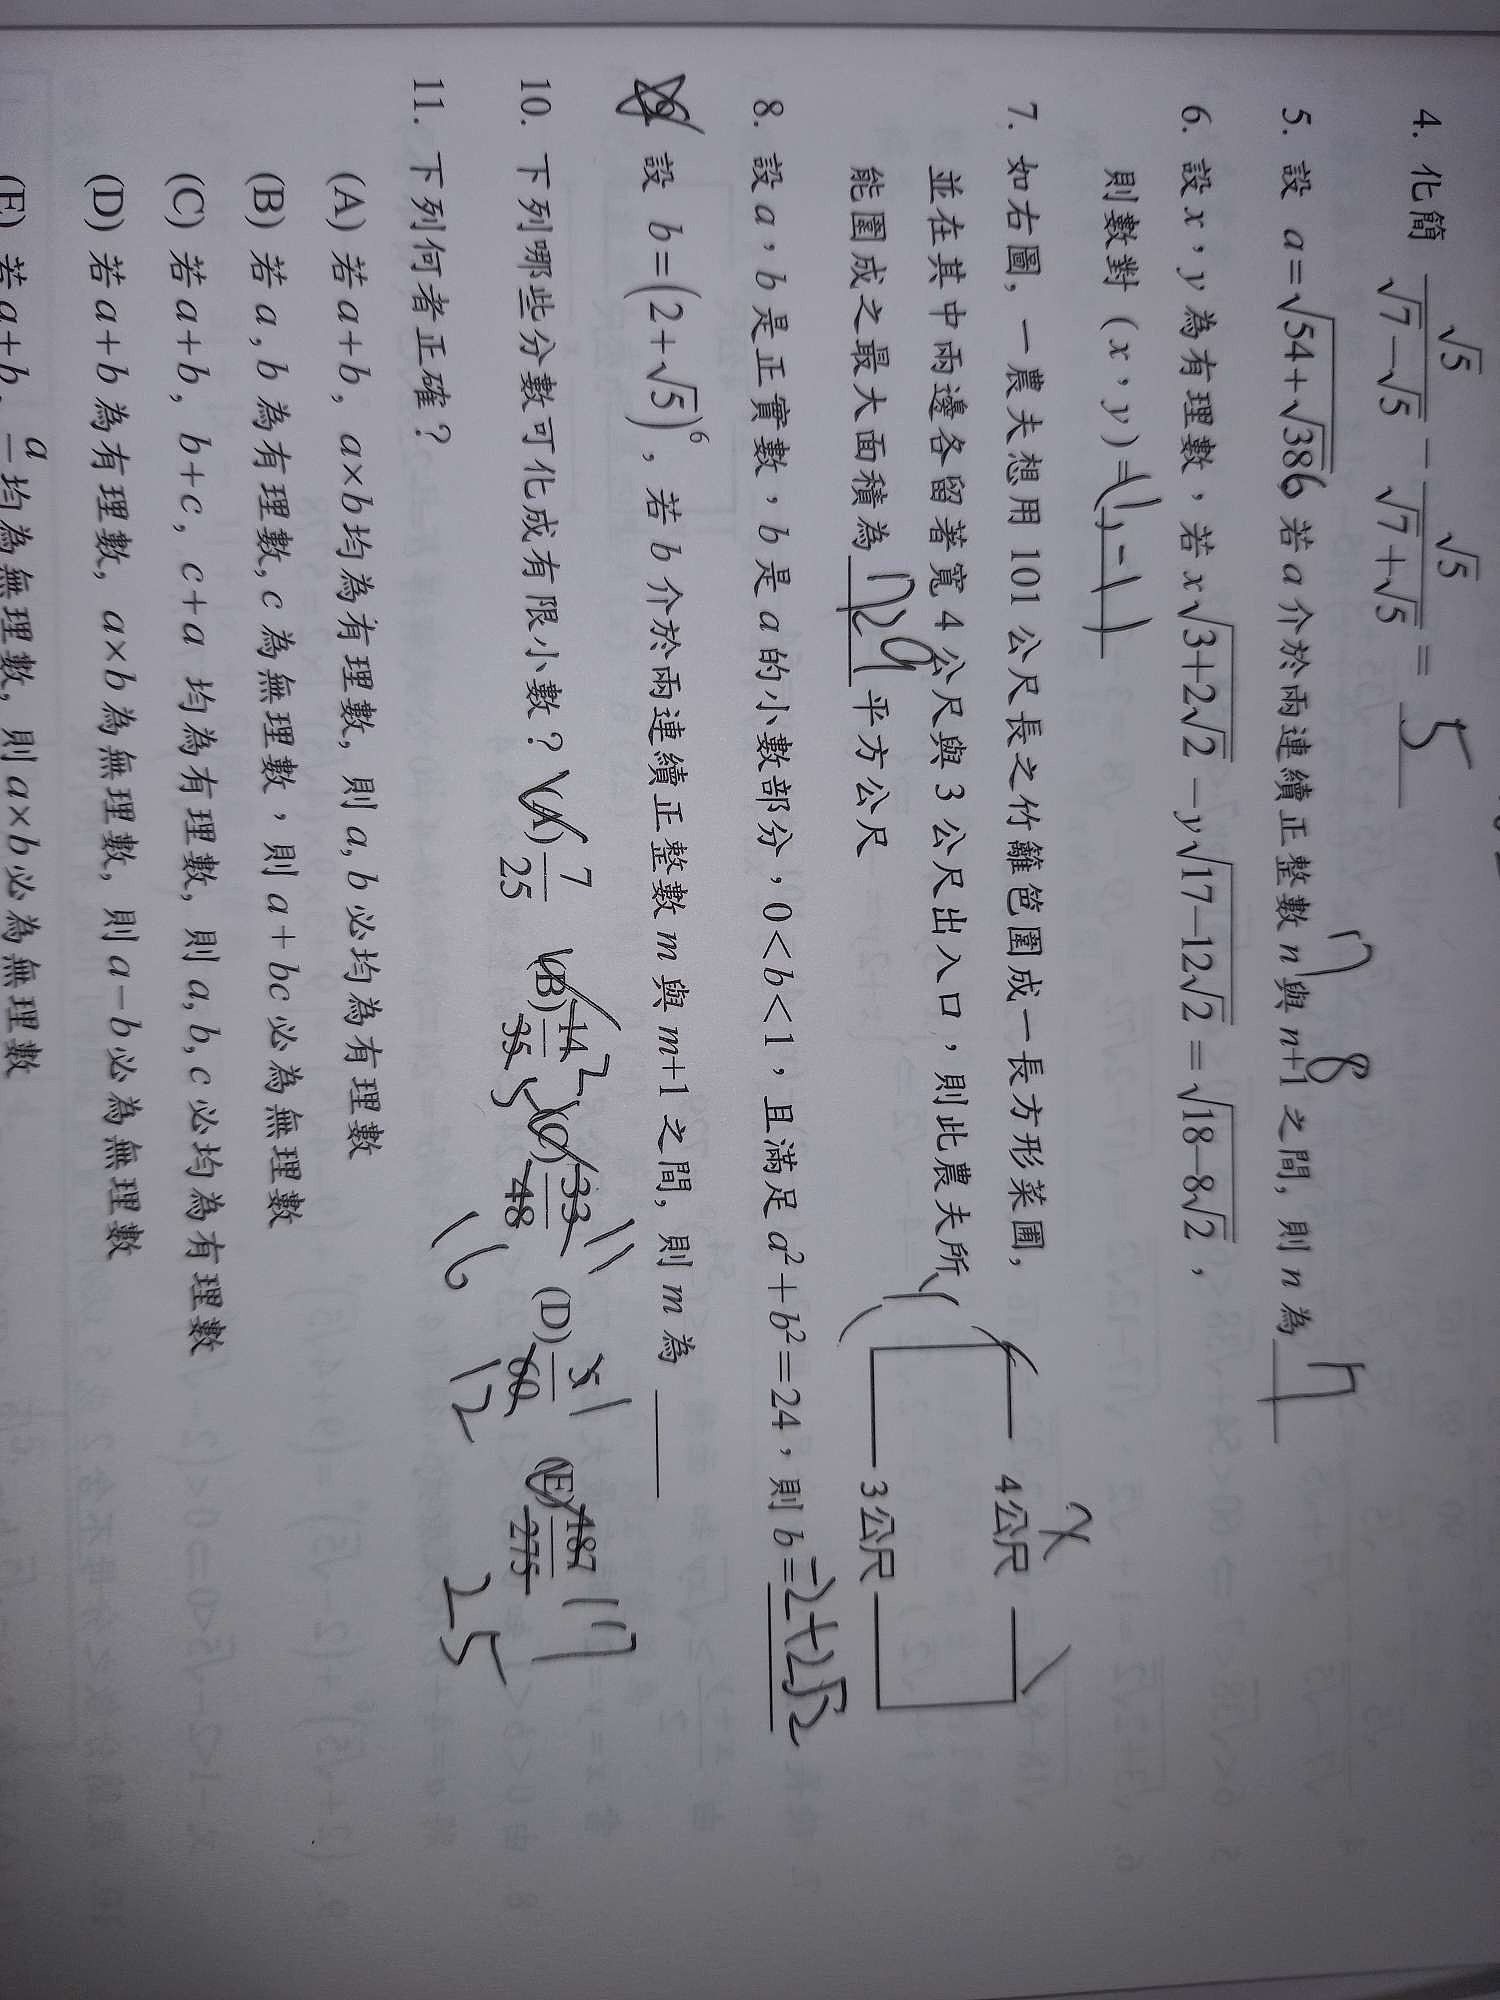 4. 化簡 √5/(√7−√5) − √5/(√7+√5) = 5
5. 設 a=√(54+√386) 若 a 介於兩連續正整數 n 與 n+1 之間, 則 n 為 7
7 8
6. 設 x，y 為有理數，若 x√(3+2√2) −y√(17−12√2) = √(18−8√2)，
則數對 (x，y) = (1, −1)
7. 如右圖, 一農夫想用 101 公尺長之竹籬笆圍成一長方形菜圃,
並在其中兩邊各留著寬 4 公尺與 3 公尺出入口，則此農夫所
能圍成之最大面積為 729 平方公尺
x
4公尺
y
3公尺
8. 設 a，b 是正實數，b 是 a 的小數部分，0<b<1，且滿足 a²+b²=24，則 b=−2+2√2
設 b=(2+√5)⁶，若 b 介於兩連續正整數 m 與 m+1 之間, 則 m 為
10. 下列哪些分數可化成有限小數？(A) 7/25 (B) 14/35 (C) 33/48 (D) 5/60 (E) 187/275
2 11 1 17
5 16 12 25
11. 下列何者正確？
(A) 若 a+b, a×b 均為有理數, 則 a, b 必均為有理數
(B) 若 a, b 為有理數, c 為無理數，則 a+bc 必為無理數
(C) 若 a+b, b+c, c+a 均為有理數, 則 a, b, c 必均為有理數
(D) 若 a+b 為有理數, a×b 為無理數, 則 a−b 必為無理數
(E) 若 a+b, a 均為無理數, 則 a×b 必為無理數